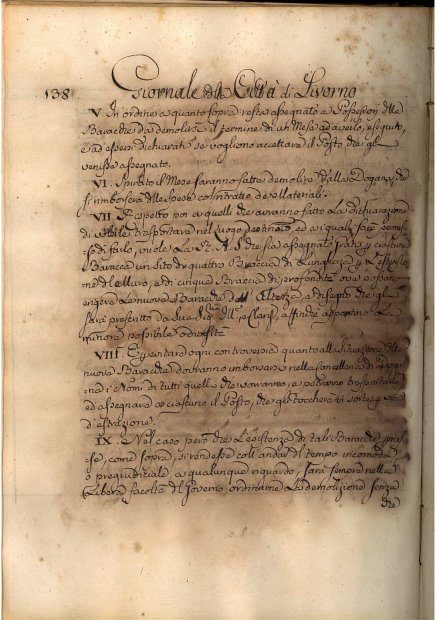 138 Giornale della Città di Livorno
V In ordine a quanto sopra resta assegnato a Possessori delle
Baracche da demolirsi il termine di un Mese
ed essersi dichiarati se vogliono accettare il Posto che gli
venisse assegnato.
VI. Spirato il Mese saranno fatte demolire dalla Dogana, che
si rimborserà delle spese col ritratto dei Materiali.
VII Rispetto poi a quelli che avranno fatto La dichiarazione
di volerle trasportare nel luogo destinato, ed a i quali sarà permes,,
so di farlo, vuole La R. A. S. che sia assegnato p ciascuna
Baracca un Sito di quattro Braccia di Lunghezza p L'estensio,,
ne del Muro, e di cinque Braccia di profondità ove possano
erigere Le nuove Baracche dell'Altezza e disegno che gli
sarà prescritto da Sua Sig.
minore possibile
VIII. Eventare ogni controversia quanto alla Situazione delle
nuove Baracche dovranno imborsarsi nella Cancelleria di Doga,,
na i Nomi di tutti quelli che vorranno, e potranno trasportarle
ed assegnarsi a ciascuno il Posto, che gli toccherà in sorte p via
d'estrazione.
IX. Nel caso però che L'esistenza di tali Baracche
come sopra, si rendesse coll'andar di tempo incomoda
o pregiudiciale, a qualunque riguardo, sarà sempre nella
Libera facoltà del Governo ordinarne La demolizione senza
che